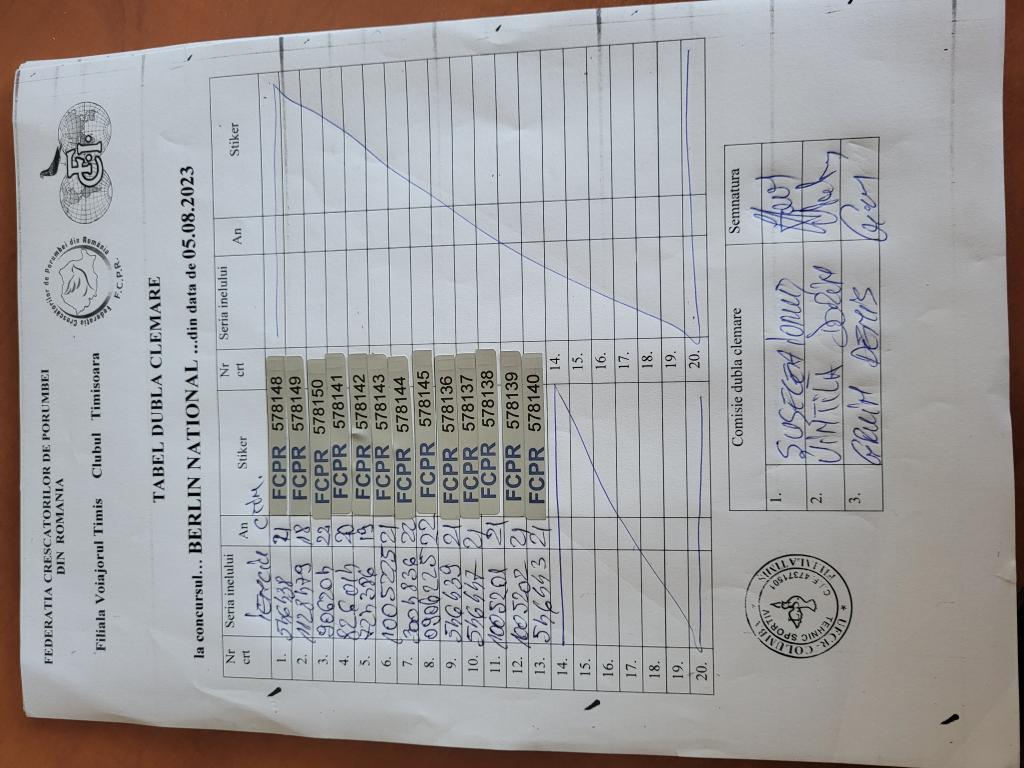 FEDERATIA CRESCATORILOR DE PORUMBEI
DIN ROMANIA
Filiala Voiajorul Timis Clubul Timisoara
Federatia Crescatorilor de Porumbei din România
F.C.P.R.
TABEL DUBLA CLEMARE
la concursul... BERLIN NATIONAL ...din data de 05.08.2023
Nr crt Seria inelului An Stiker Nr crt Seria inelului An Stiker
1. 546438 21 FCPR 578148
2. 1128479 18 FCPR 578149
3. 906204 22 FCPR 578150
4. 20 FCPR 578141
5. 19 FCPR 578142
6. 1005225 21 FCPR 578143
7. 22 FCPR 578144
8. 22 FCPR 578145
9. 546439 21 FCPR 578136
10. 546447 21 FCPR 578137
11. 1005201 21 FCPR 578138
12. 1005202 21 FCPR 578139
13. 546443 21 FCPR 578140
14. 14.
15. 15.
16. 16.
17. 17.
18. 18.
19. 19.
20. 20.
Comisie dubla clemare Semnatura
1.
2. VINTILĂ
3. DENIS
UFCR-COLUMBA
TEHNIC SPORTIV
FILIALA TIMIS
C.I.F. 47371501